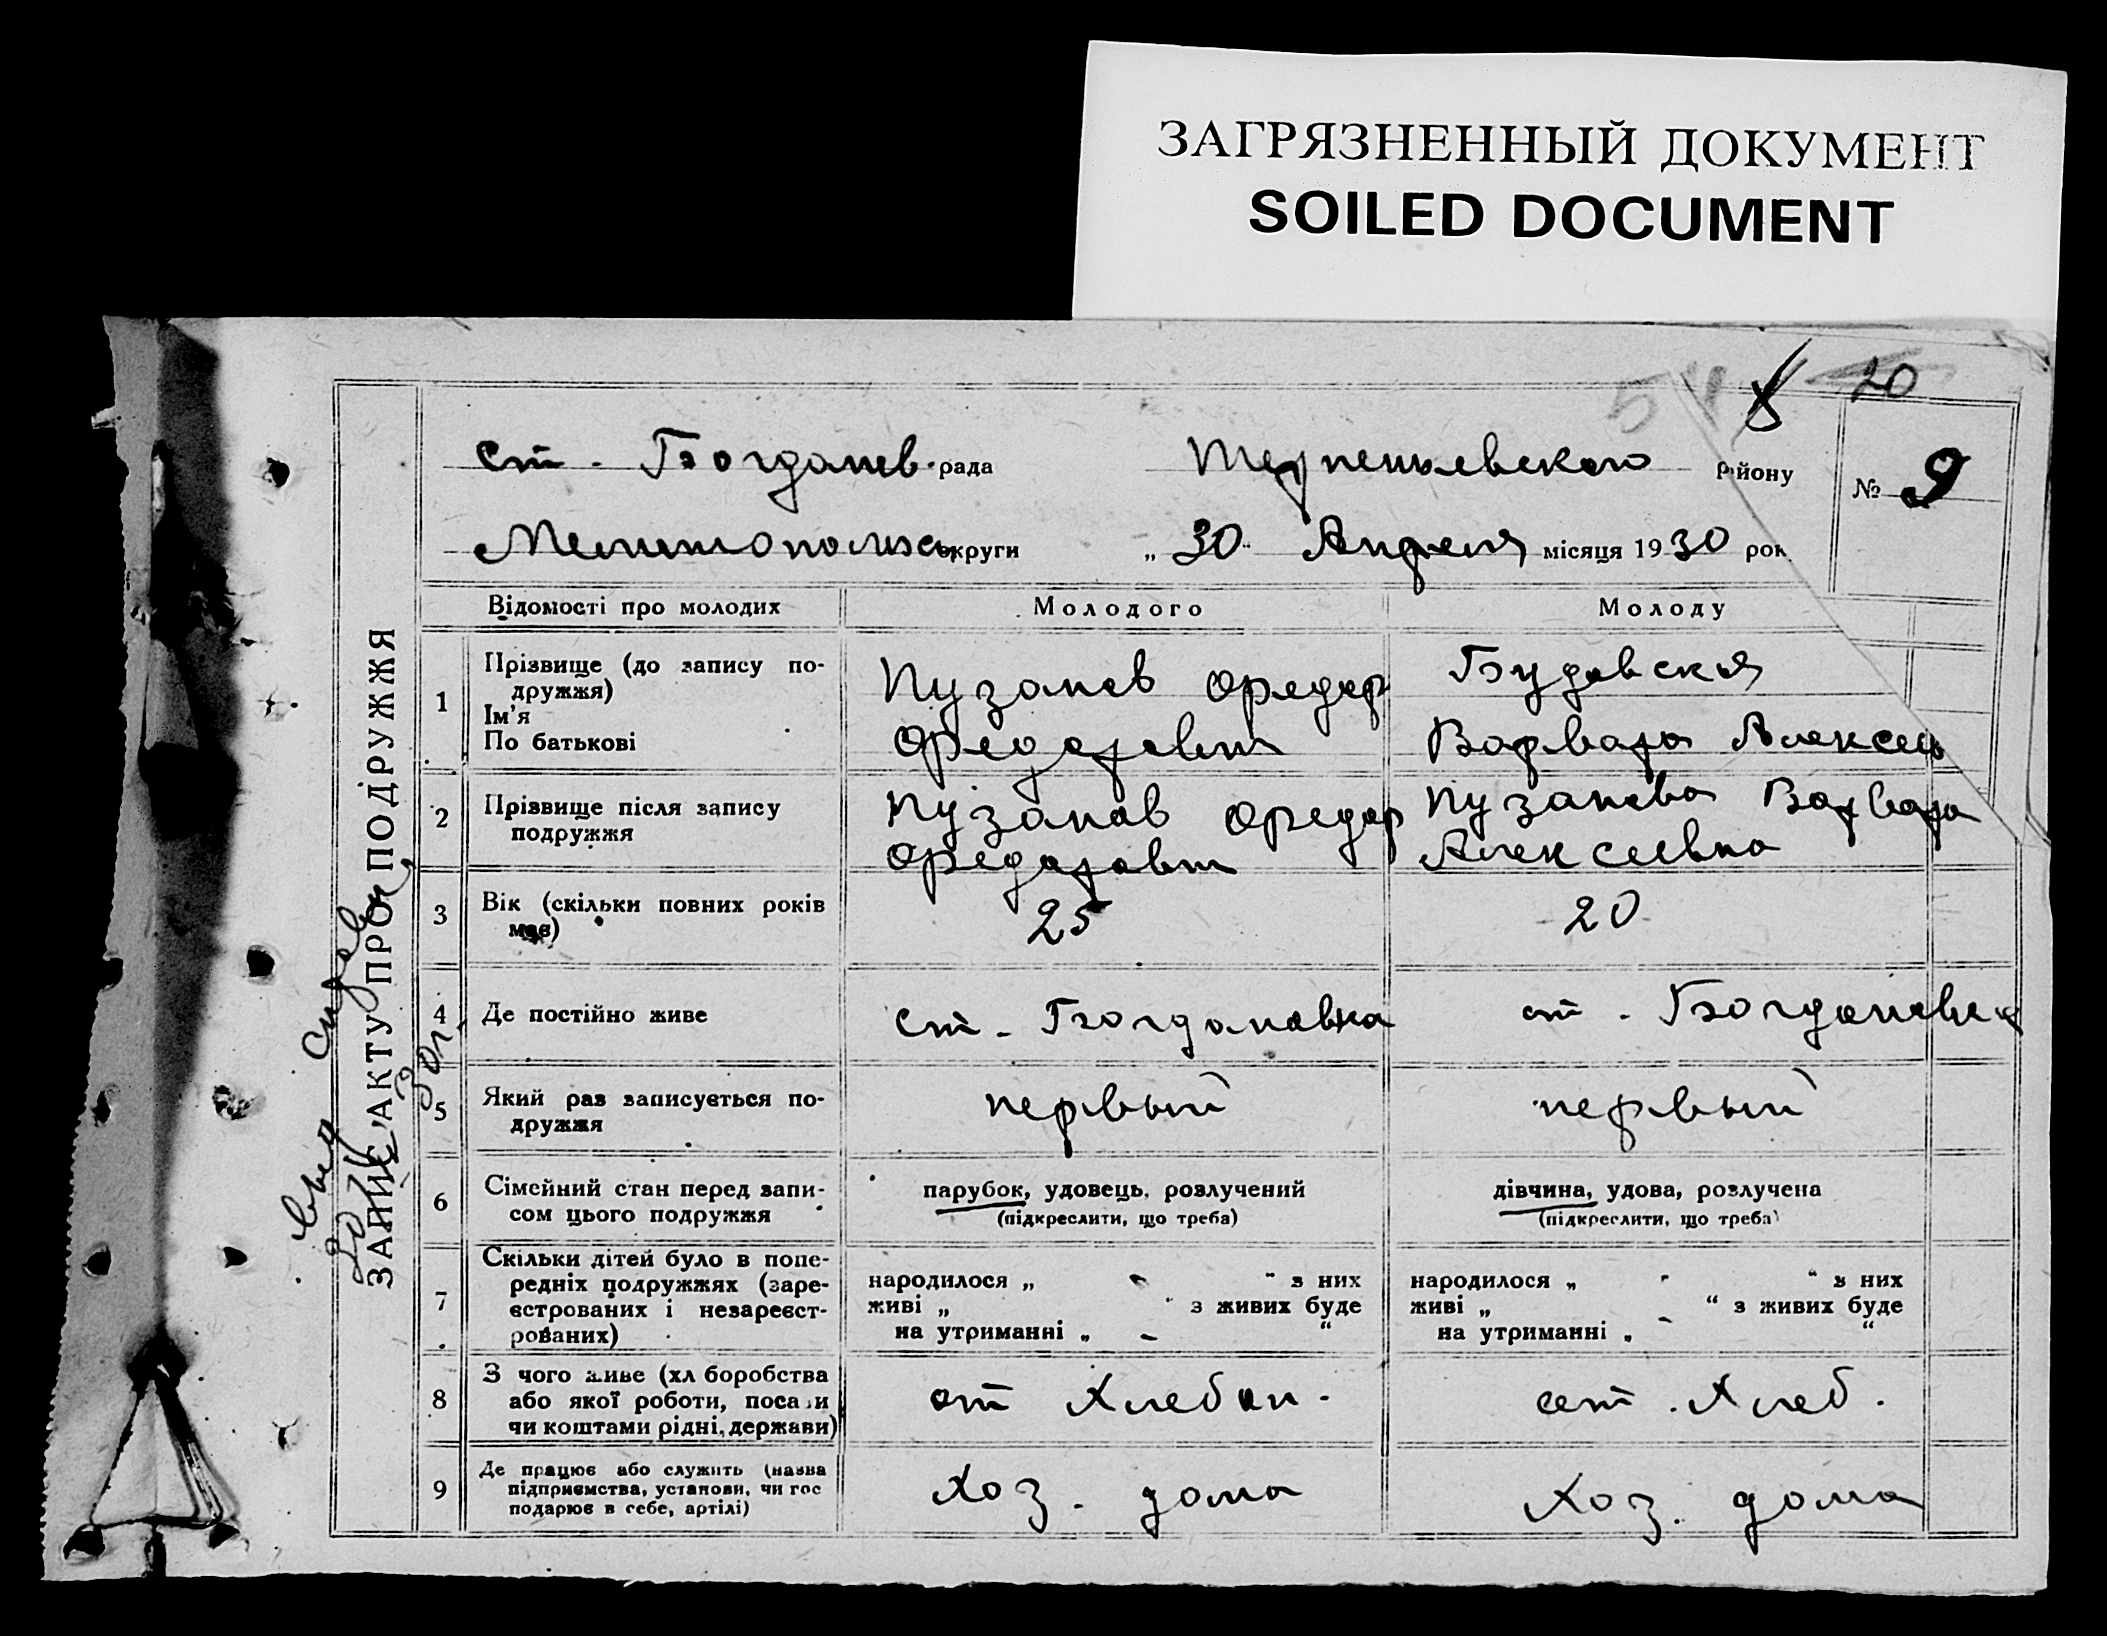 ЗАГРЯЗНЕННЫЙ ДОКУМЕНТ
SOILED DOCUMENT
20
8
ст. Богданов. рада Терпеньевского району № 9
Мелитопольск округи „ 30 " Апреля місяця 1930 рок
ЗАПИС АКТУ ПРО ПОДРУЖЖЯ
Відомості про молодих Молодого Молоду
1 Прізвище (до запису подружжя)
Ім'я
По батькові
Пузанов Федор
Федоровт
Будовская
Варвара Алексеев
2 Прізвище після запису
подружжя
Пузанов Федор
Федоровт
Пузанова Варвара
Алексеевна
3 Вік (скільки повних років
має)
25
20
4 Де постійно живе
ст. Богдановка
ст. Богдановка
5 Який раз записується по-
дружжя
первый
первый
6 Сімейний стан перед запи-
сом цього подружжя
парубок, удовець, розлучений
(підкреслити, що треба)
дівчина, удова, розлучена
(підкреслити, що треба)
7 Скільки дітей було в попе-
редніх подружжях (заре-
єстрованих і незареєст-
рованих)
народилося „ - " з них
живі „ " з живих буде
на утриманні „ - "
народилося „ - " з них
живі „ - " з живих буде
на утриманні „ "
8 З чого живе (хліборобства
або якої роботи, посади
чи коштами рідні, держави)
от Хлебоп.
от. Хлеб.
9 Де працює або служить (назва
підприємства, установи, чи гос
подарює в себе, артілі)
Хоз. дома
Хоз. дома